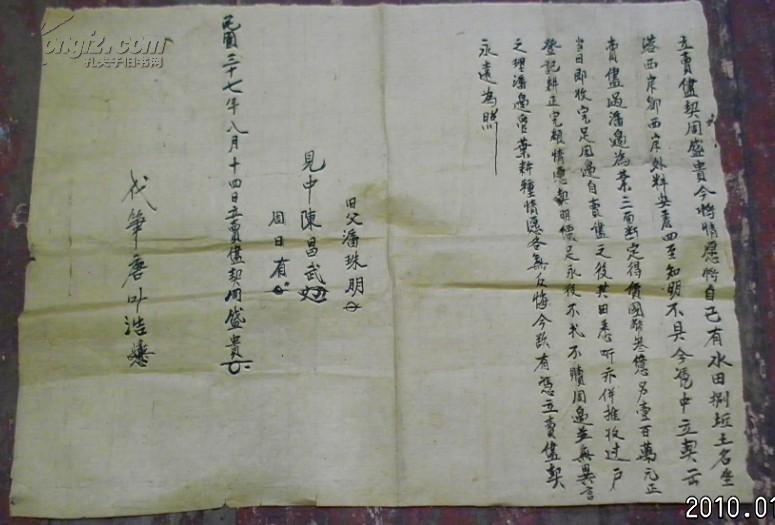 立賣儘契周盛貴今將情愿將自己有水田捌坵土名坐
落西岸鄉西岸外料安着四至知明不具今凭中立契云
賣儘過潘邊為業三面断定得價國幣叁億另壹百萬元正
當日即收完足周邊自賣儘之後其田悉听亦併推收过户
登記耕正完粮情愿契明價足永後不代不贖周邊並無異言
之理潘邊管業耕種情愿各無反悔今欲有憑立賣儘契
永遠為照
旧父潘珠明
見中陳昌武
周日有
民國三十七年八月十四日立賣儘契周盛貴
代筆唐叶浩
Kongfz.com
孔夫子旧书网
2010.01